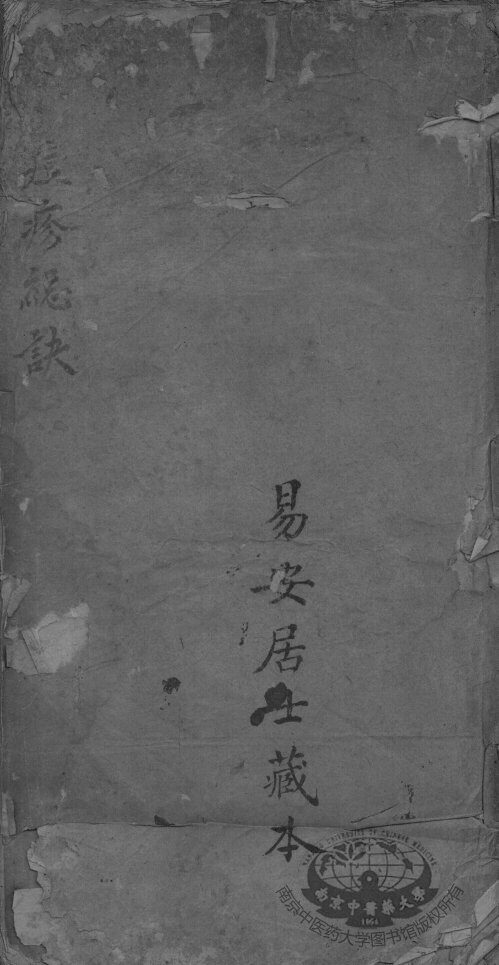 痘疹秘訣
易安居士藏本
UNIVERSITY OF CHINESE MEDICINE
南京中醫藥大學
1954
南京中医药大学图书馆版权所有